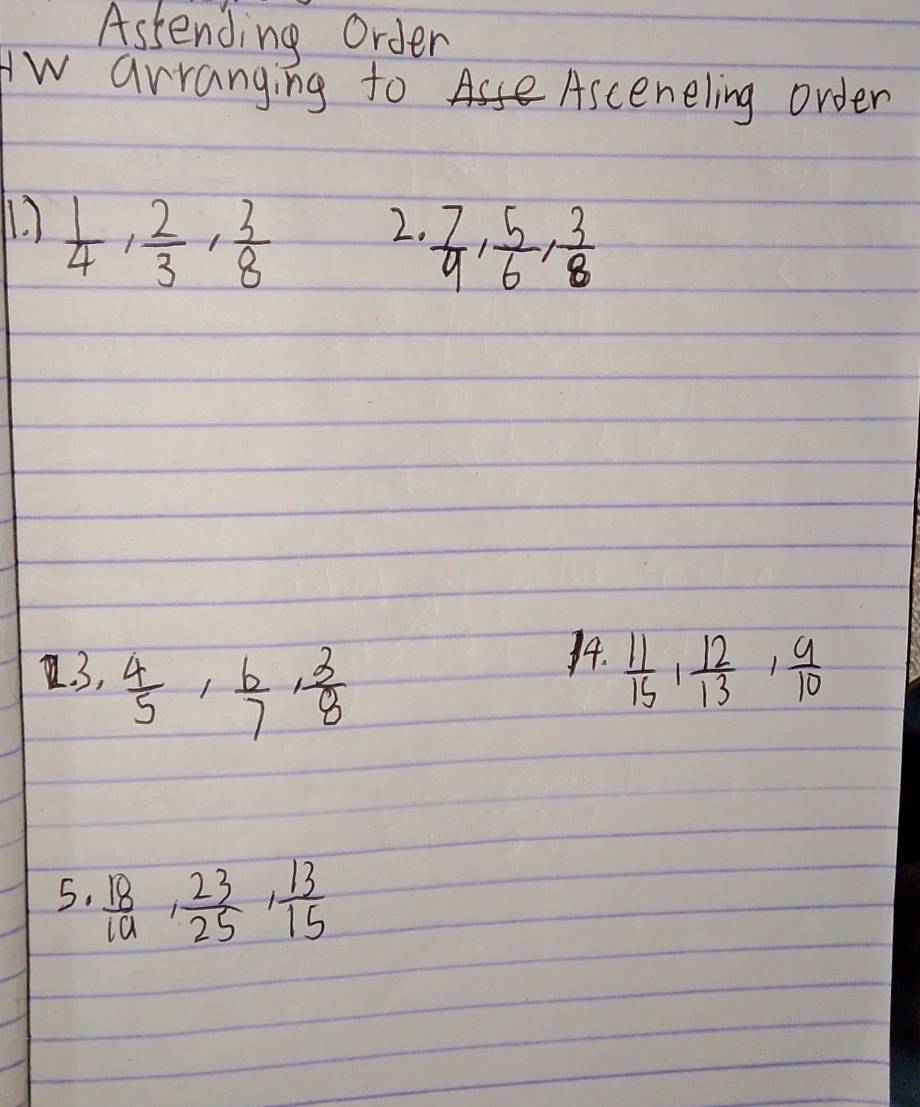 Assending Order
HW arranging to Asse Asceneling order
1.) 1/4, 2/3, 3/8 2. 7/9, 5/6, 3/8
3, 4/5, 6/7, 3/8 4. 11/15, 12/13, 9/10
5. 18/19, 23/25, 13/15